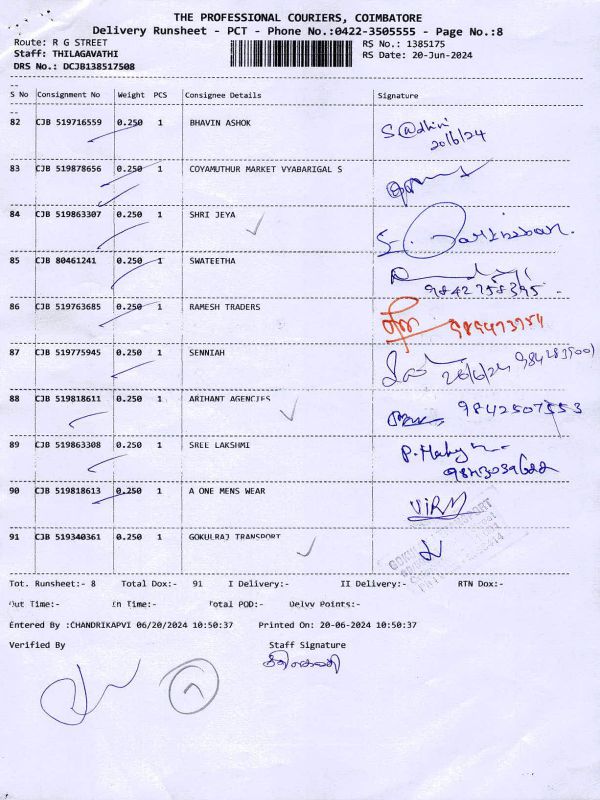 THE PROFESSIONAL COURIERS, COIMBATORE
Delivery Runsheet - PCT - Phone No.:0422-3505555 - Page No.:8
Route: R G STREET RS No.: 1385175
Staff: THILAGAVATHI RS Date: 20-Jun-2024
DRS No.: DCJB138517508
S No Consignment No Weight PCS Consignee Details Signature
82 CJB 519716559 0.250 1 BHAVIN ASHOK
20/6/24
83 CJB 519878656 0.250 1 COYAMUTHUR MARKET VYABARIGAL S
84 CJB 519863307 0.250 1 SHRI JEYA
85 CJB 80461241 0.250 1 SWATEETHA
9842758395
86 CJB 519763685 0.250 1 RAMESH TRADERS
87 CJB 519775945 0.250 1 SENNIAH
88 CJB 519818611 0.250 1 ARIHANT AGENCIES 9842507553
89 CJB 519863308 0.250 1 SREE LAKSHMI
90 CJB 519818613 0.250 1 A ONE MENS WEAR
91 CJB 519340361 0.250 1 GOKULRAJ TRANSPORT
Tot. Runsheet:- 8 Total Dox:- 91 I Delivery:- II Delivery:- RTN Dox:-
Out Time:- In Time:- Total POD:- Delvy Points:-
Entered By :CHANDRIKAPVI 06/20/2024 10:50:37 Printed On: 20-06-2024 10:50:37
Verified By Staff Signature